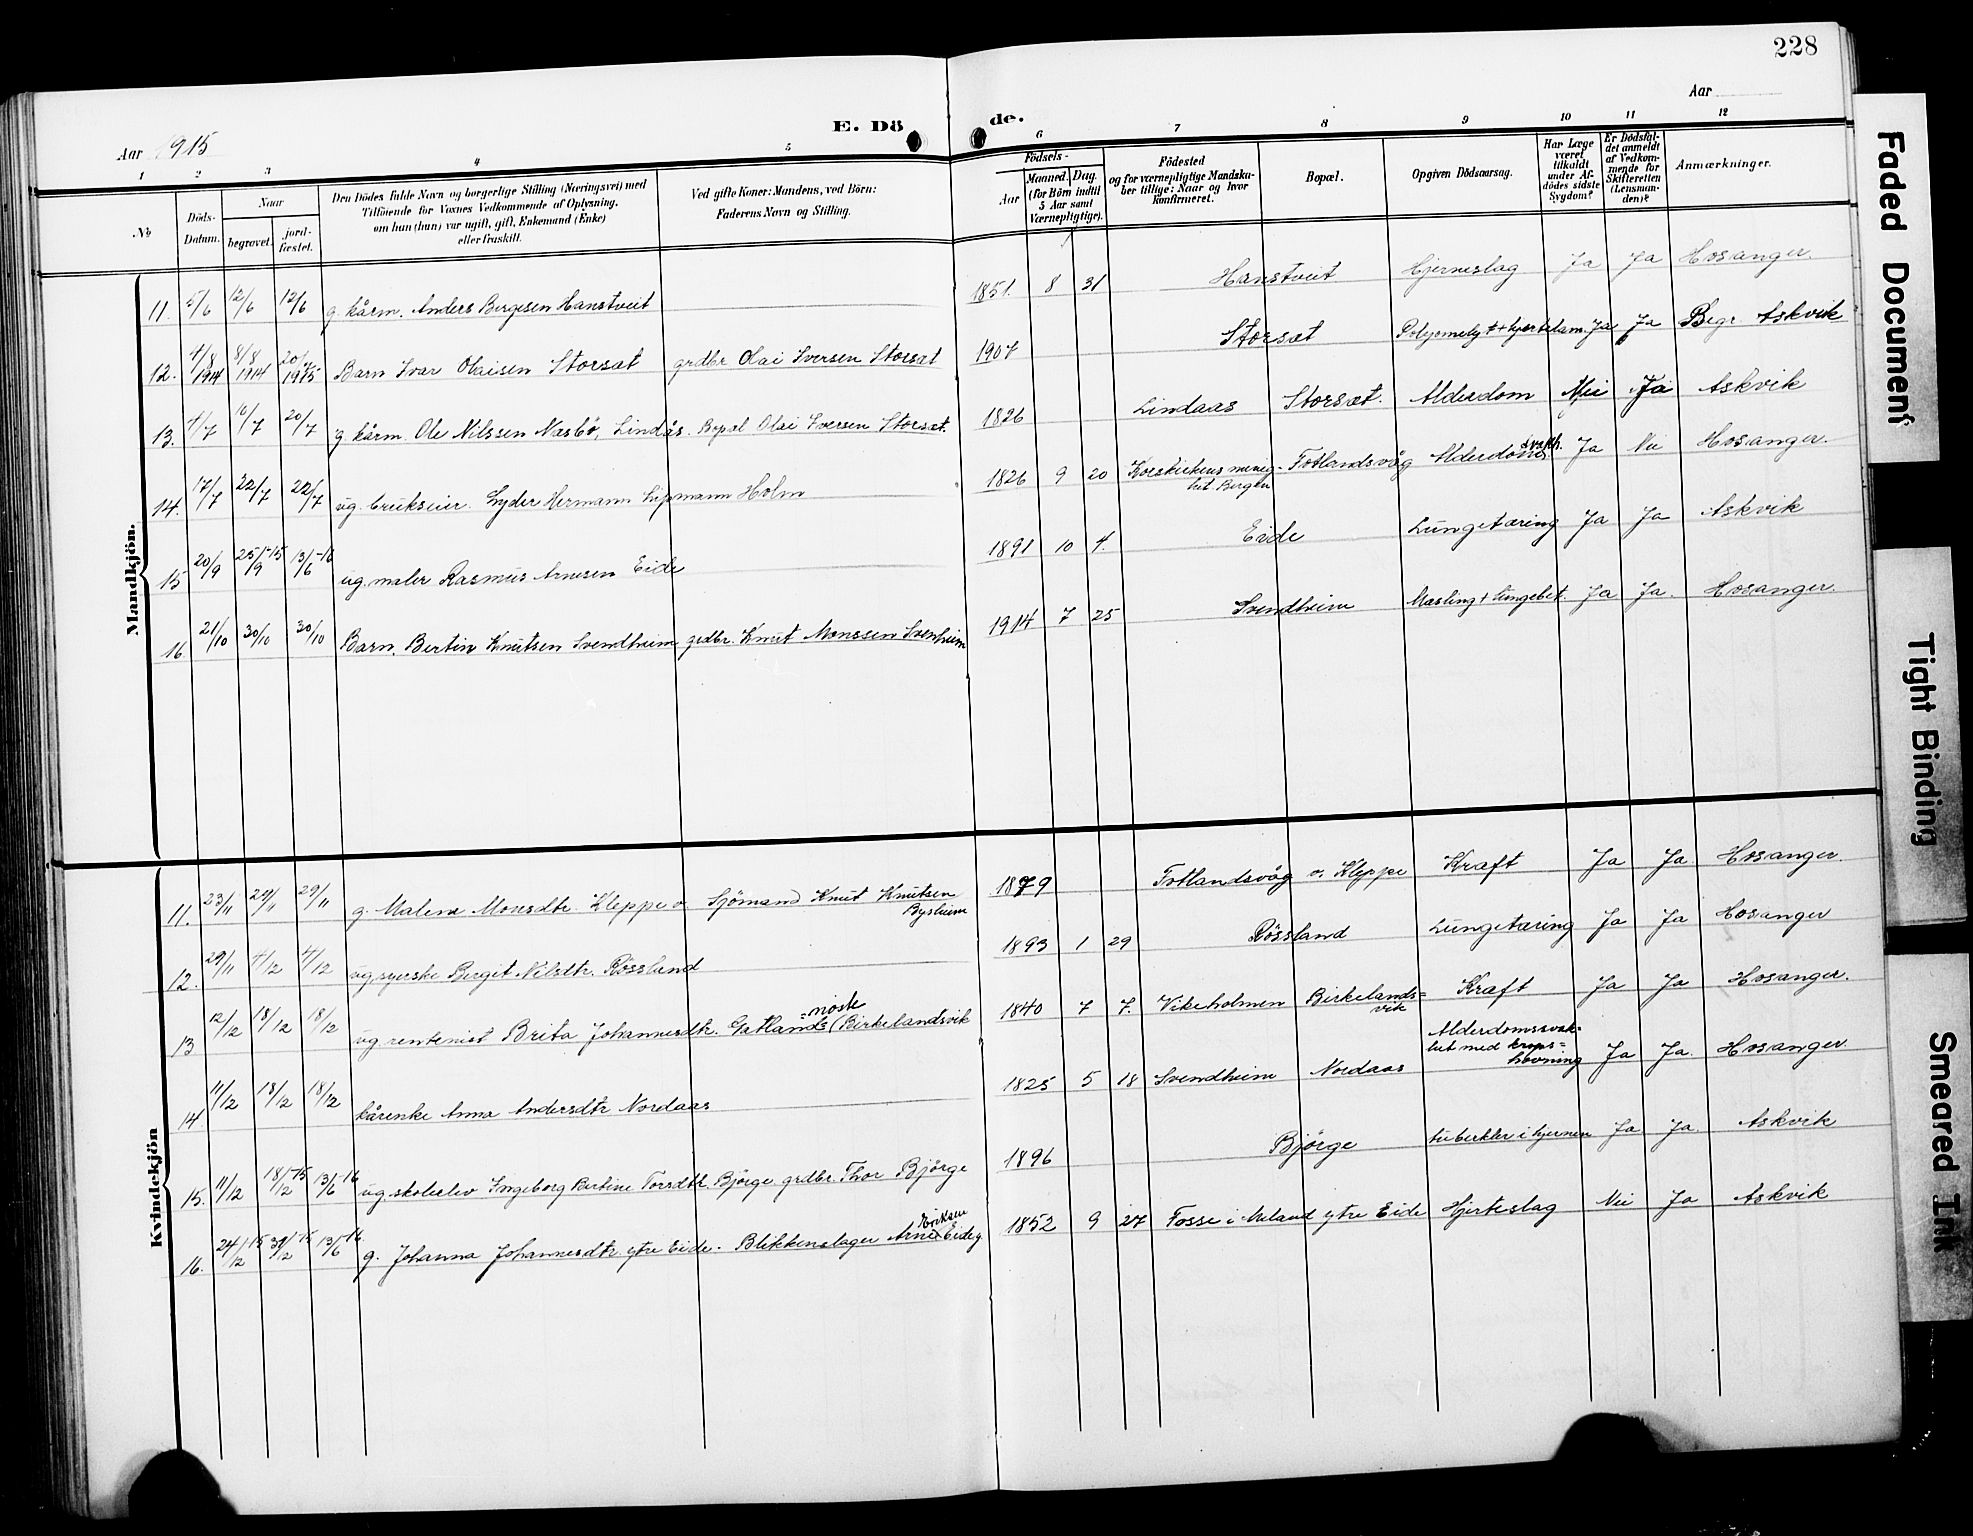 228
Aar 1915
E. Dö
de.
Aar
1 2 3 4 5 6 7 8 9 10 11 12
No
Döds-
Datum.
Naar
begravet.
jord-
fæstet.
Den Dödes fulde Navn og borgerlige Stilling (Næringsvei) med
Tilföiende for Voxnes Vedkommende af Oplysning,
om han (hun) var ugift, gift, Enkemand (Enke)
eller fraskilt.
Ved gifte Koner: Mandens, ved Börn:
Faderens Navn og Stilling.
Födsels-
Aar
Maaned. Dag.
(for Börn indtil
5 Aar samt
Værnepligtige).
Födested
og for værnepligtige Mandska-
ber tillige: Naar og hvor
konfirmeret.
Bopæl.
Opgiven Dödsaarsag.
Har Læge
været
tilkaldt
under Af-
dödes sidste
Sygdom?
Er Dödsfal-
det anmeldt
af Vedkom-
mende for
Skifteretten
(Lensman-
den)?
Anmærkninger.
Mandkjön.
11. 5/6 12/6 12/6 g. kårm. Anders Bergesen Hanstveit 1851. 8 31 Hanstveit Hjerneslag Ja Ja Hosanger.
12. 4/8 1914 8/8 1914 20/7 1915 Barn Ivar Olaisen Storsæt grdbr. Olai Iversen Storsæt 1907 Storsæt Ja Ja Begr. Askvik
13. 4/7 10/7 20/7 g. kårm. Ole Nilssen Nasbö, Lindås. Bopæl Olai Iversen Storsæt. 1826 Lindaas Storsæt. Alderdom Nei Ja Askvik
14. 17/7 22/7 22/7 ug. brukseier. Lyder Hermann Lipmann Holm 1826 9 20 Korskirkens menig-
het. Bergen Totlandsvåg Alderdoms
svakh. Ja Nei Hosanger.
15 20/9 25/9-15 13/6-16 ug. maler Rasmus Arnesen Eide 1891 10 4. Eide Lungetæring Ja Ja Askvik
16. 21/10 30/10 30/10 Barn. Bertin Knutsen Svendheim grdbr. Knut Monssen Svenheim 1914 7 25 Svendheim Mæsling + lungebet. Ja Ja. Hosanger.
Kvindekjön
11. 23/11 29/11 29/11 g. Malene Monsdtr. Kleppe o. Sjömand Knut Knutsen
Bysheim 1879 Totlandsvåg o. Kleppe Kraft Ja Ja Hosanger.
12. 29/11 4/12 4/12 ug. syerske Bergit Nilsdtr. Rössland 1893 1 29 Rössland Lungetæring Ja Ja Hosanger
13 12/12 18/12 18/12 ug. rentenist Brita Johannesdtr. Gatlands=
nöste (Birkelandsvik 1840 7 7. Vikeholmen Birkelands=
vik Kraft Ja Ja Hosanger.
14. 11/12 18/12 18/12 kårenke Anna Andersdtr Nordaas 1825 5 18 Svendheim Nordaas Alderdomssvak-
het med krops=
hovning Ja Ja. Hosanger.
15. 11/12 18/12-15 13/6-16 ug. skoleelev Ingeborg Bertine Torsdtr. Bjørge grdbr. Thor Bjørge 1896 Bjørge tuberkler i hjernen Ja Ja. Askvik
16. 24/12-15 31/12-15 13/6-16 g. Johanna Johannesdtr. ytre Eide. Blikkenslager Arne
Eriksen
Eide y. 1852 9 27 Fosse i Meland ytre Eide Hjerteslag Nei Ja Askvik
Faded Document
Tight Binding
Smeared Ink